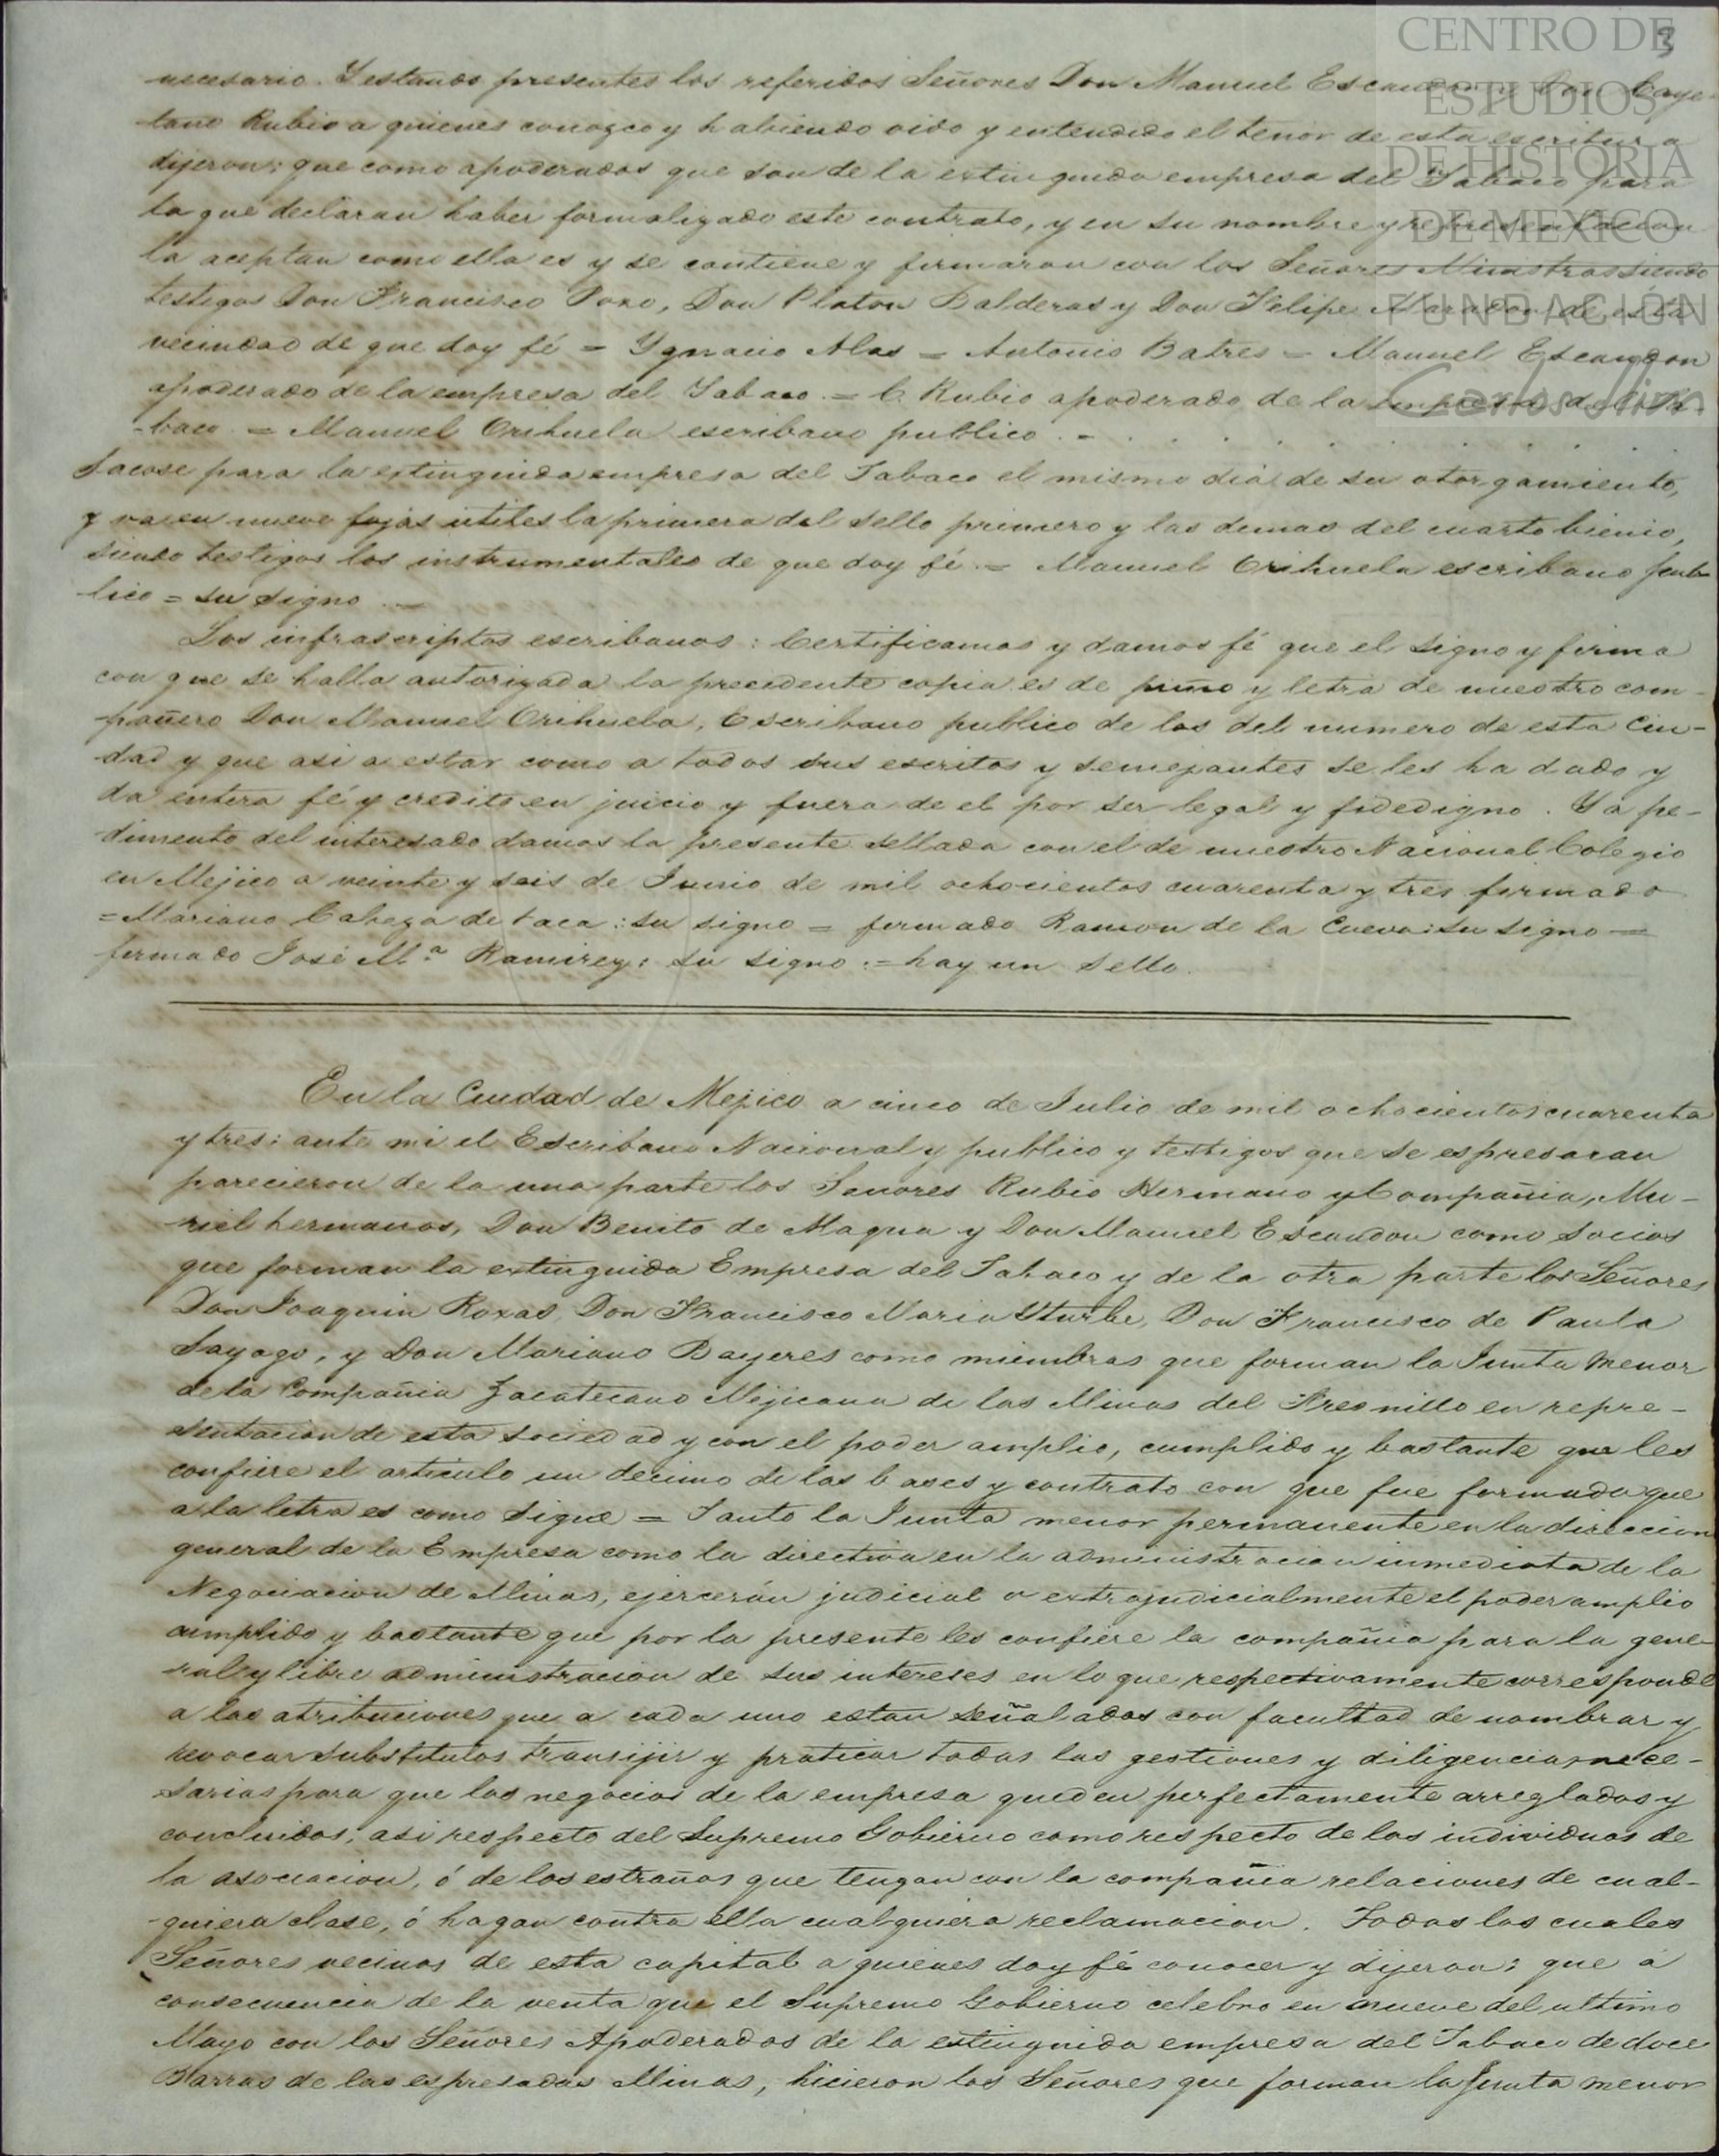 CENTRO DE
ESTUDIOS
DE HISTORIA
DE MEXICO
FUNDACIÓN
Carlos Slim
3
necesario. Y estando presentes los referidos Señores Don Manuel Escandon y Don Caye-
tano Rubio a quienes conozco y habiendo oido y entendido el tenor de esta escritura
dijeron: que como apoderados que son de la extinguida empresa del Tabaco para
la que declaran haber formalizado este contrato, y en su nombre y representacion
la aceptan como ella es y se contiene y firmaron con los Señores Ministros siendo
testigos Don Francisco Pozo, Don Platon Balderas y Don Felipe de esta
vecindad de que doy fé = Ygnacio Alas = Antonio Batres = Manuel Escandon
apoderado de la empresa del Tabaco. = C. Rubio apoderado de la empresa del Ta-
baco = Manuel Orihuela escribano publico. -
Sacose para la extinguida empresa del Tabaco el mismo dia de su otorgamiento,
y va en nueve fojas utiles la primera del sello primero y las demas del cuarto bienio,
siendo testigos los instrumentales de que doy fé. = Manuel Orihuela escribano pub-
lico = su signo. —
Los infrascriptos escribanos: Certificamos y damos fé que el signo y firma
con que se halla autorizada la precedente copia es de puño y letra de nuestro com-
pañero Don Manuel Orihuela, Escribano publico de los del numero de esta Ciu-
dad y que asi a estar como a todos sus escritos y semejantes se les ha dado y
da entera fé y credito en juicio y fuera de el por ser legal y fidedigno. Y a pe-
dimento del interesado damos la presente sellada con el de nuestro Nacional Colegio
en Mejico a veinte y seis de Junio de mil ochocientos cuarenta y tres firmado
= Mariano Cabeza de baca: su signo = firmado Ramon de la Cueva: su signo =
firmado José M.ª Ramirez: su signo. = hay un sello.
En la Ciudad de Mejico a cinco de Julio de mil ochocientos cuarenta
y tres: ante mi el Escribano Nacional y publico y testigos que se espresaran
parecieron de la una parte los Senores Rubio Hermano y Compañia, Mu-
riel hermanos, Don Benito de Maqua y Don Manuel Escandon como socios
que forman la extinguida Empresa del Tabaco y de la otra parte los Señores
Don Joaquin Roxas, Don Francisco Maria Yturbe, Don Francisco de Paula
Sayago, y Don Mariano Bayeres como miembros que forman la Junta Menor
de la Compañia Zacatecano Mejicana de las Minas del Fresnillo en repre-
sentacion de esta sociedad y con el poder amplio, cumplido y bastante que les
confiere el articulo un decimo de las bases y contrato con que fue formada que
a la letra es como sigue = Tanto la Junta menor permanente en la direccion
general de la Empresa como la directiva en la administracion inmediata de la
Negociacion de Minas, ejercerán judicial o extrajudicialmente el poder amplio
cumplido y bastante que por la presente les confiere la compañia para la gene-
ral y libre administracion de sus intereses en lo que respectivamente corresponde
a las atribuciones que a cada uno estan señalados con facultad de nombrar y
revocar substitutos transijir y praticar todas las gestiones y diligencias nece-
sarias para que los negocios de la empresa queden perfectamente arreglados y
concluidos; asi respecto del Supremo Gobierno como respecto de los individuos de
la asociacion, ó de los estraños que tengan con la compañia relaciones de cual-
quiera clase, ó hagan contra ella cualquiera reclamacion. Todos los cuales
Señores vecinos de esta capital a quienes doy fé conocer y dijeron: que á
consecuencia de la venta que el Supremo Gobierno celebro en nueve del ultimo
Mayo con los Señores Apoderados de la extinguida empresa del Tabaco de doce
Barras de las espresadas Minas, hicieron los Señores que forman la Junta menor